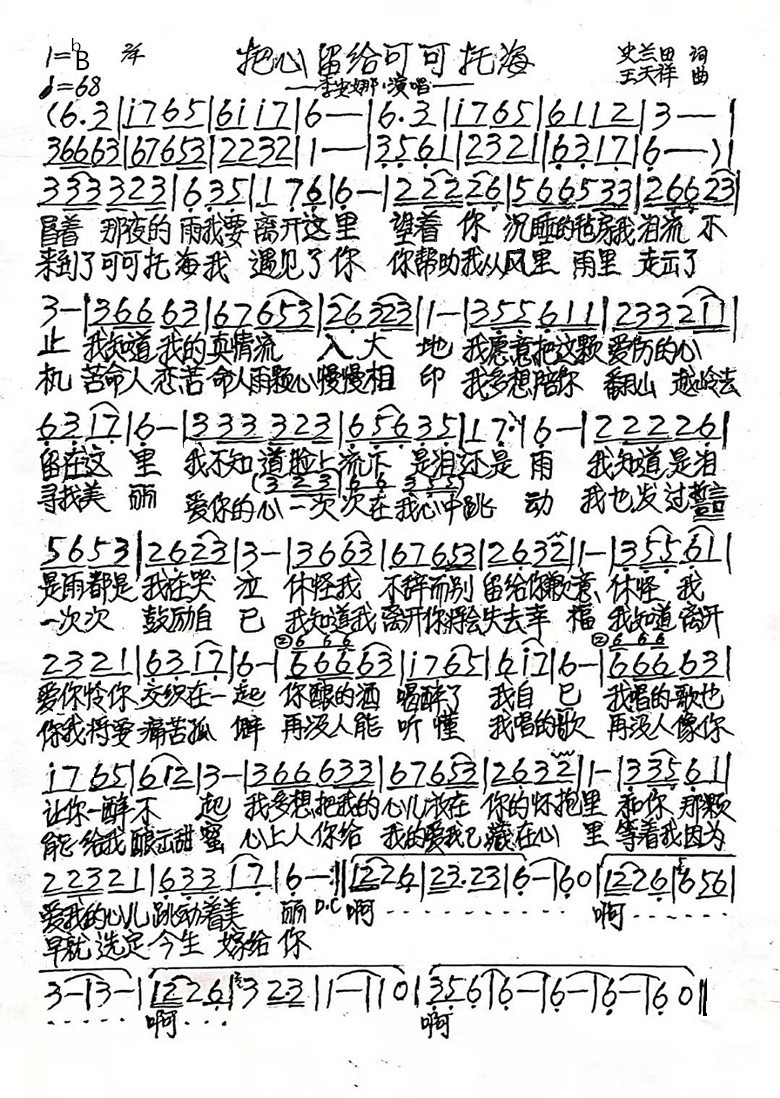 1=bB 2/4 把心留给可可托海 史兰田 词
♩=68 —李安娜·演唱— 王天祥 曲
(6.3|i765|6i17|6——|6.3|i765|6112|3——|
36663|67653|2232|1——|3561|2321|6317|6——)|
333323|635|176|6—|222226|566533|26623|
冒着 那夜的 雨我要 离开这里 望着 你 沉睡的毡房我泪流 不
来到了可可托海我 遇见了你 你帮助我从风里 雨里 走出了
3—|366663|67653|26323|1—|355611|233211|
止 我知道 我的真情流 入大 地 我愿意把这颗 爱伤的心
机 苦命人恋苦命人两颗心慢慢相 印 我多想陪你 翻山 越岭去
6317|6—|333323|65635|17·|6—|222226|
留在这 里 我不知道脸上流下 是泪还是 雨 我知道是泪
寻找美 丽 爱你的心一次次在我心中跳 动 我也发过誓言
(323|66 355)
5653|2623|3—|3663|67653|2632|1—|35561|
是雨都是 我在哭 泣 休怪我 不辞而别 留给你歉意 休怪 我
一次次 鼓励自 己 我知道我 离开你将会失去幸 福 我知道 离开
2321|6317|6—|66663|i765|6i7|6—|66663|
②666 ②666
爱你怜你 交织在一起 你酿的酒 喝醉了 我自 己 我唱的歌也
你我将受 痛苦孤 僻 再没人能 听懂 我唱的歌 再没人像你
i765|612|3—|366633|67653|2632|1—|33561|
让你一醉不 起 我多想把我的 心儿放在 你的怀抱里 和你 那颗
能给我酿出甜蜜 心上人你给 我的爱我已藏在心 里 等着我因为
22321|63317|6—:‖1226|23.23|6—|60|1226|656|
爱我的心儿跳动着美 丽 D.C 啊 - - - - - - - - - 啊 - - - - - -
早就 选定 今生 嫁给 你
3—|3—|1226|323|1—|10|356|6—|6—|6—|60‖
- - - - - 啊 - - - 啊